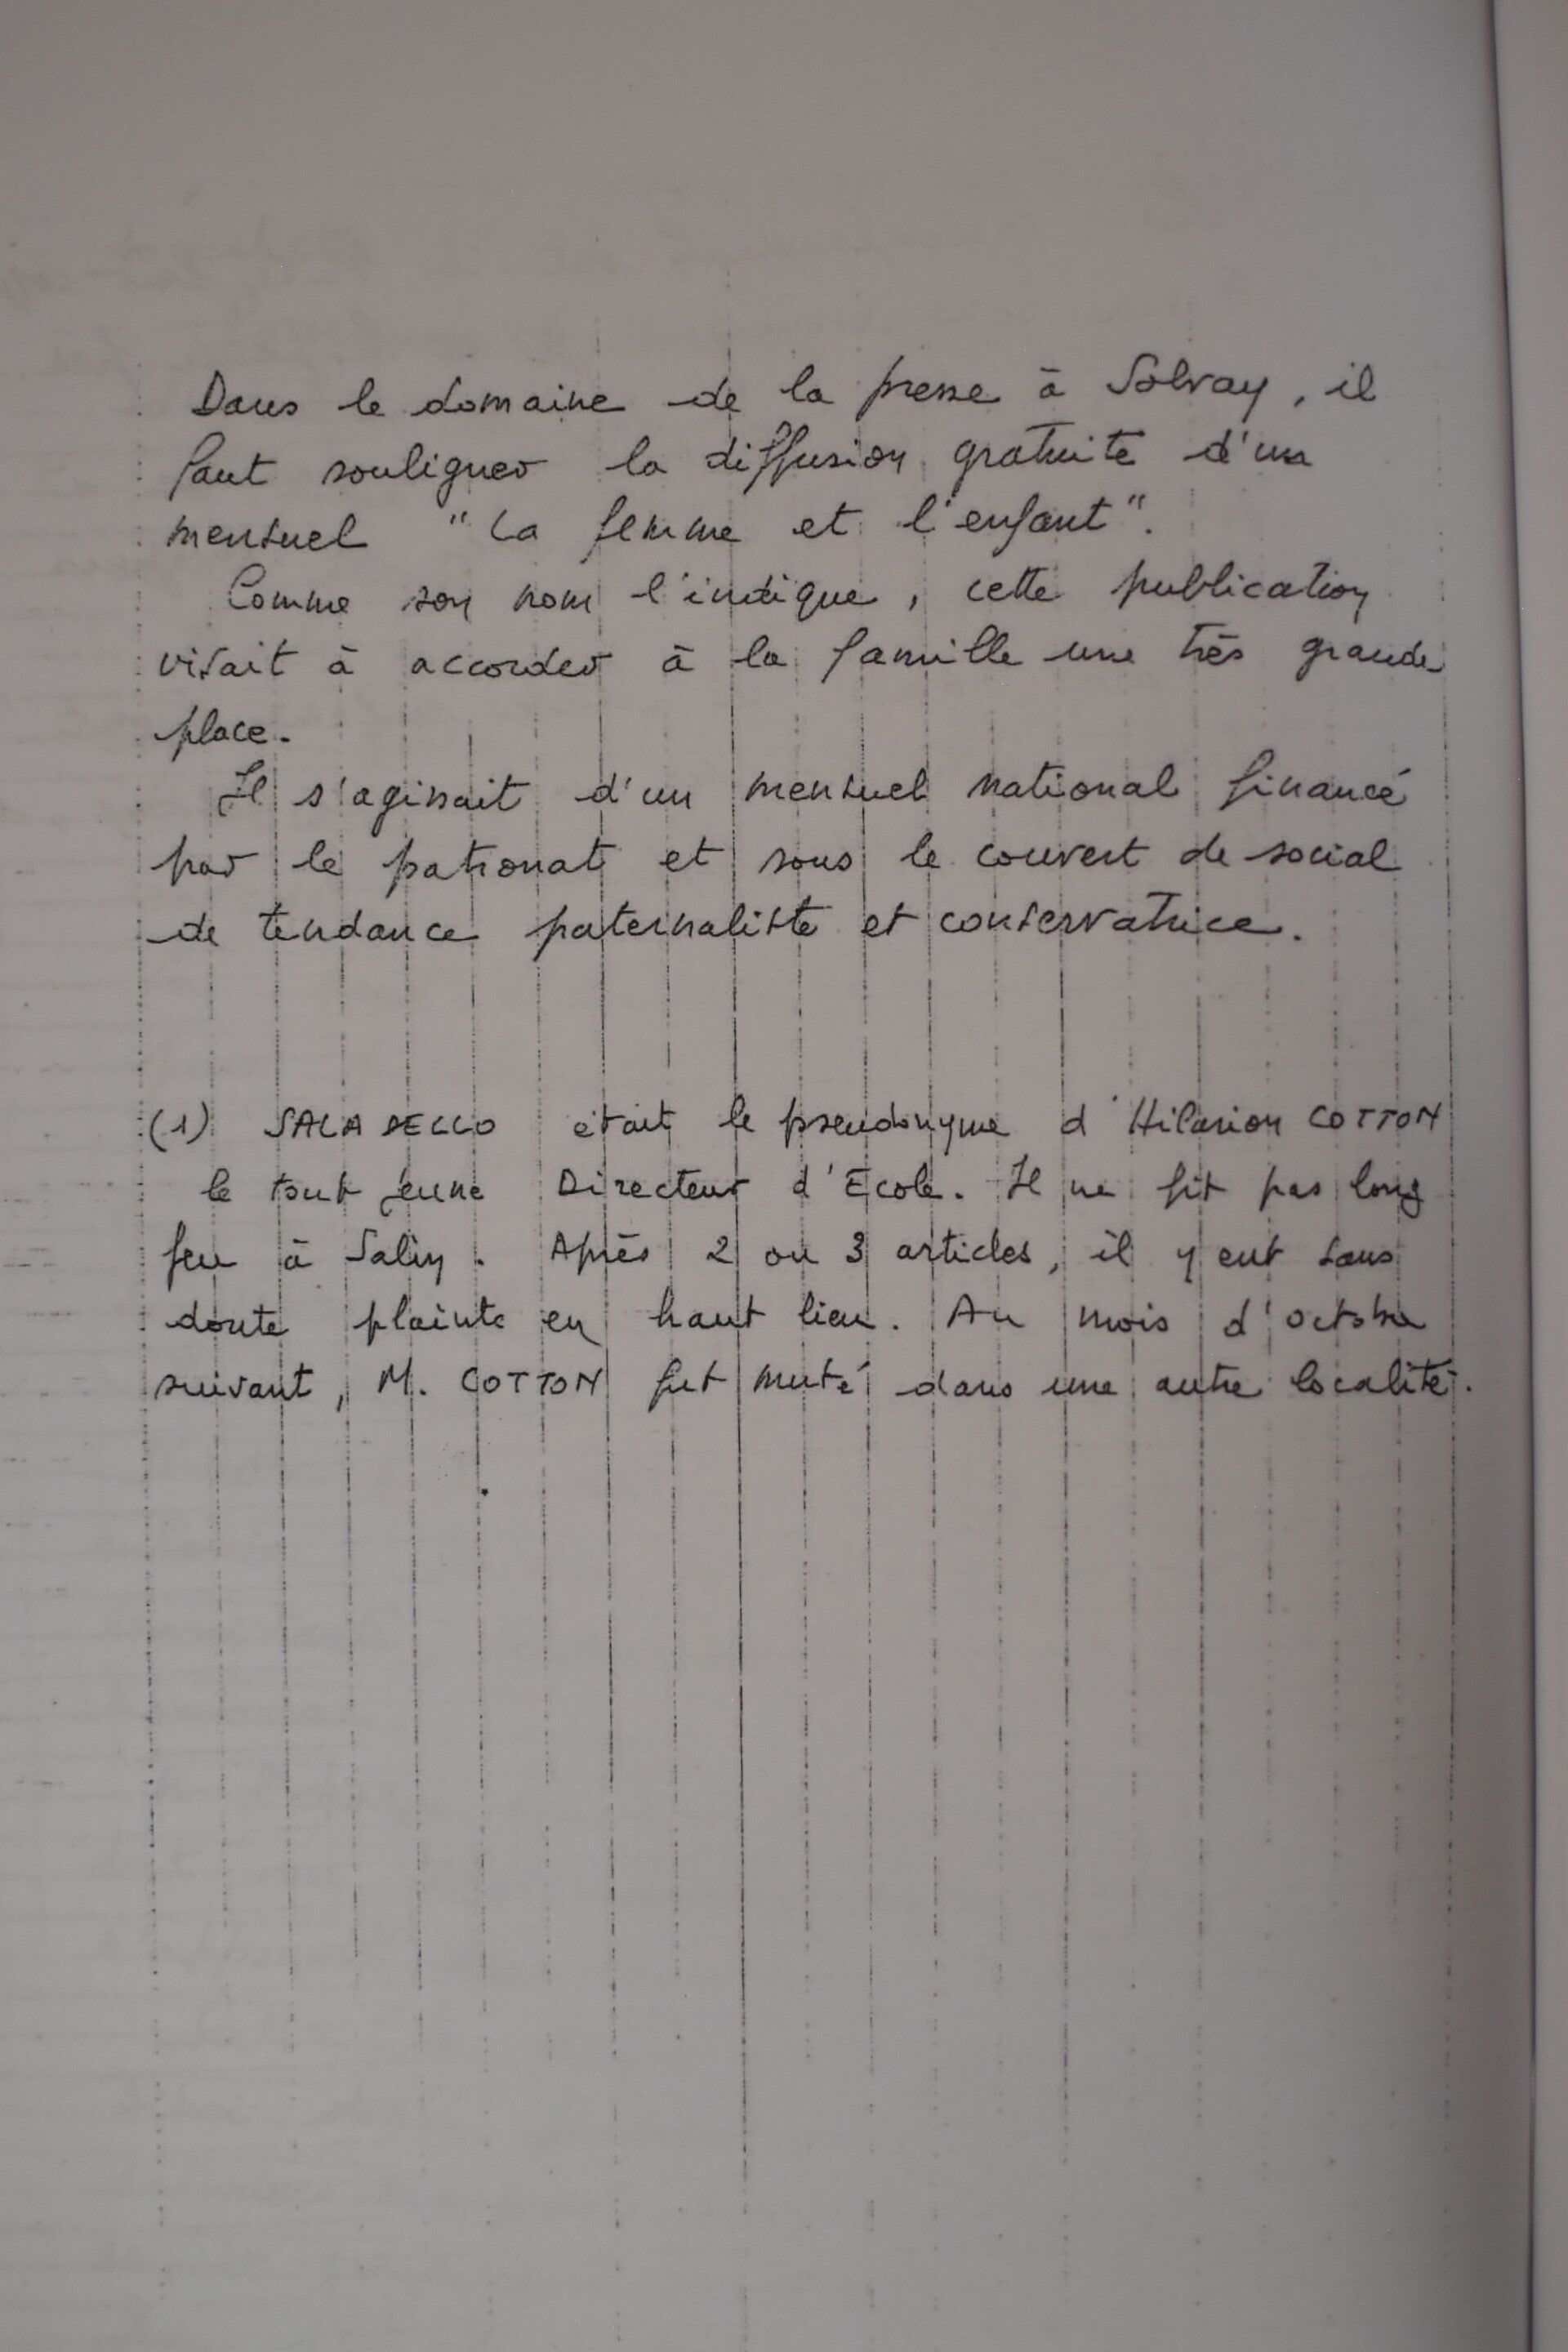 Dans le domaine de la presse à Solvay, il
faut souligner la diffusion gratuite d'un
mensuel "La femme et l'enfant".
Comme son nom l'indique, cette publication
visait à accorder à la famille une très grande
place.
Il s'agissait d'un mensuel national financé
par le patronat et sous le couvert de social
de tendance paternaliste et conservatrice.
(1) SALADELLO était le pseudonyme d'Hilarion COTTON
le tout jeune Directeur d'Ecole. Il ne fit pas long
feu à Salin. Après 2 ou 3 articles, il y eut sans
doute plainte en haut lieu. Au mois d'octobre
suivant, M. COTTON fut muté dans une autre localité.